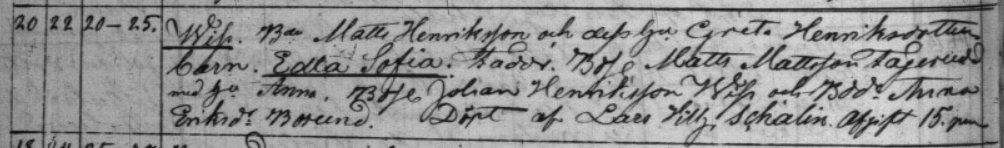 20 22 20-25. Wiss. Bdn Matts Henriksson och dess hu Greta Henriksdotters
barn. Edla Sofia. Faddr. Bdsf Matts Mattsson Fagerudd
med hu Anna. Bdsf Johan Henriksson Wiss och Bdd. Anna
Eriksdr Boseund. Döpt af Lars Vilh. Schalin. Afgift 15. pen